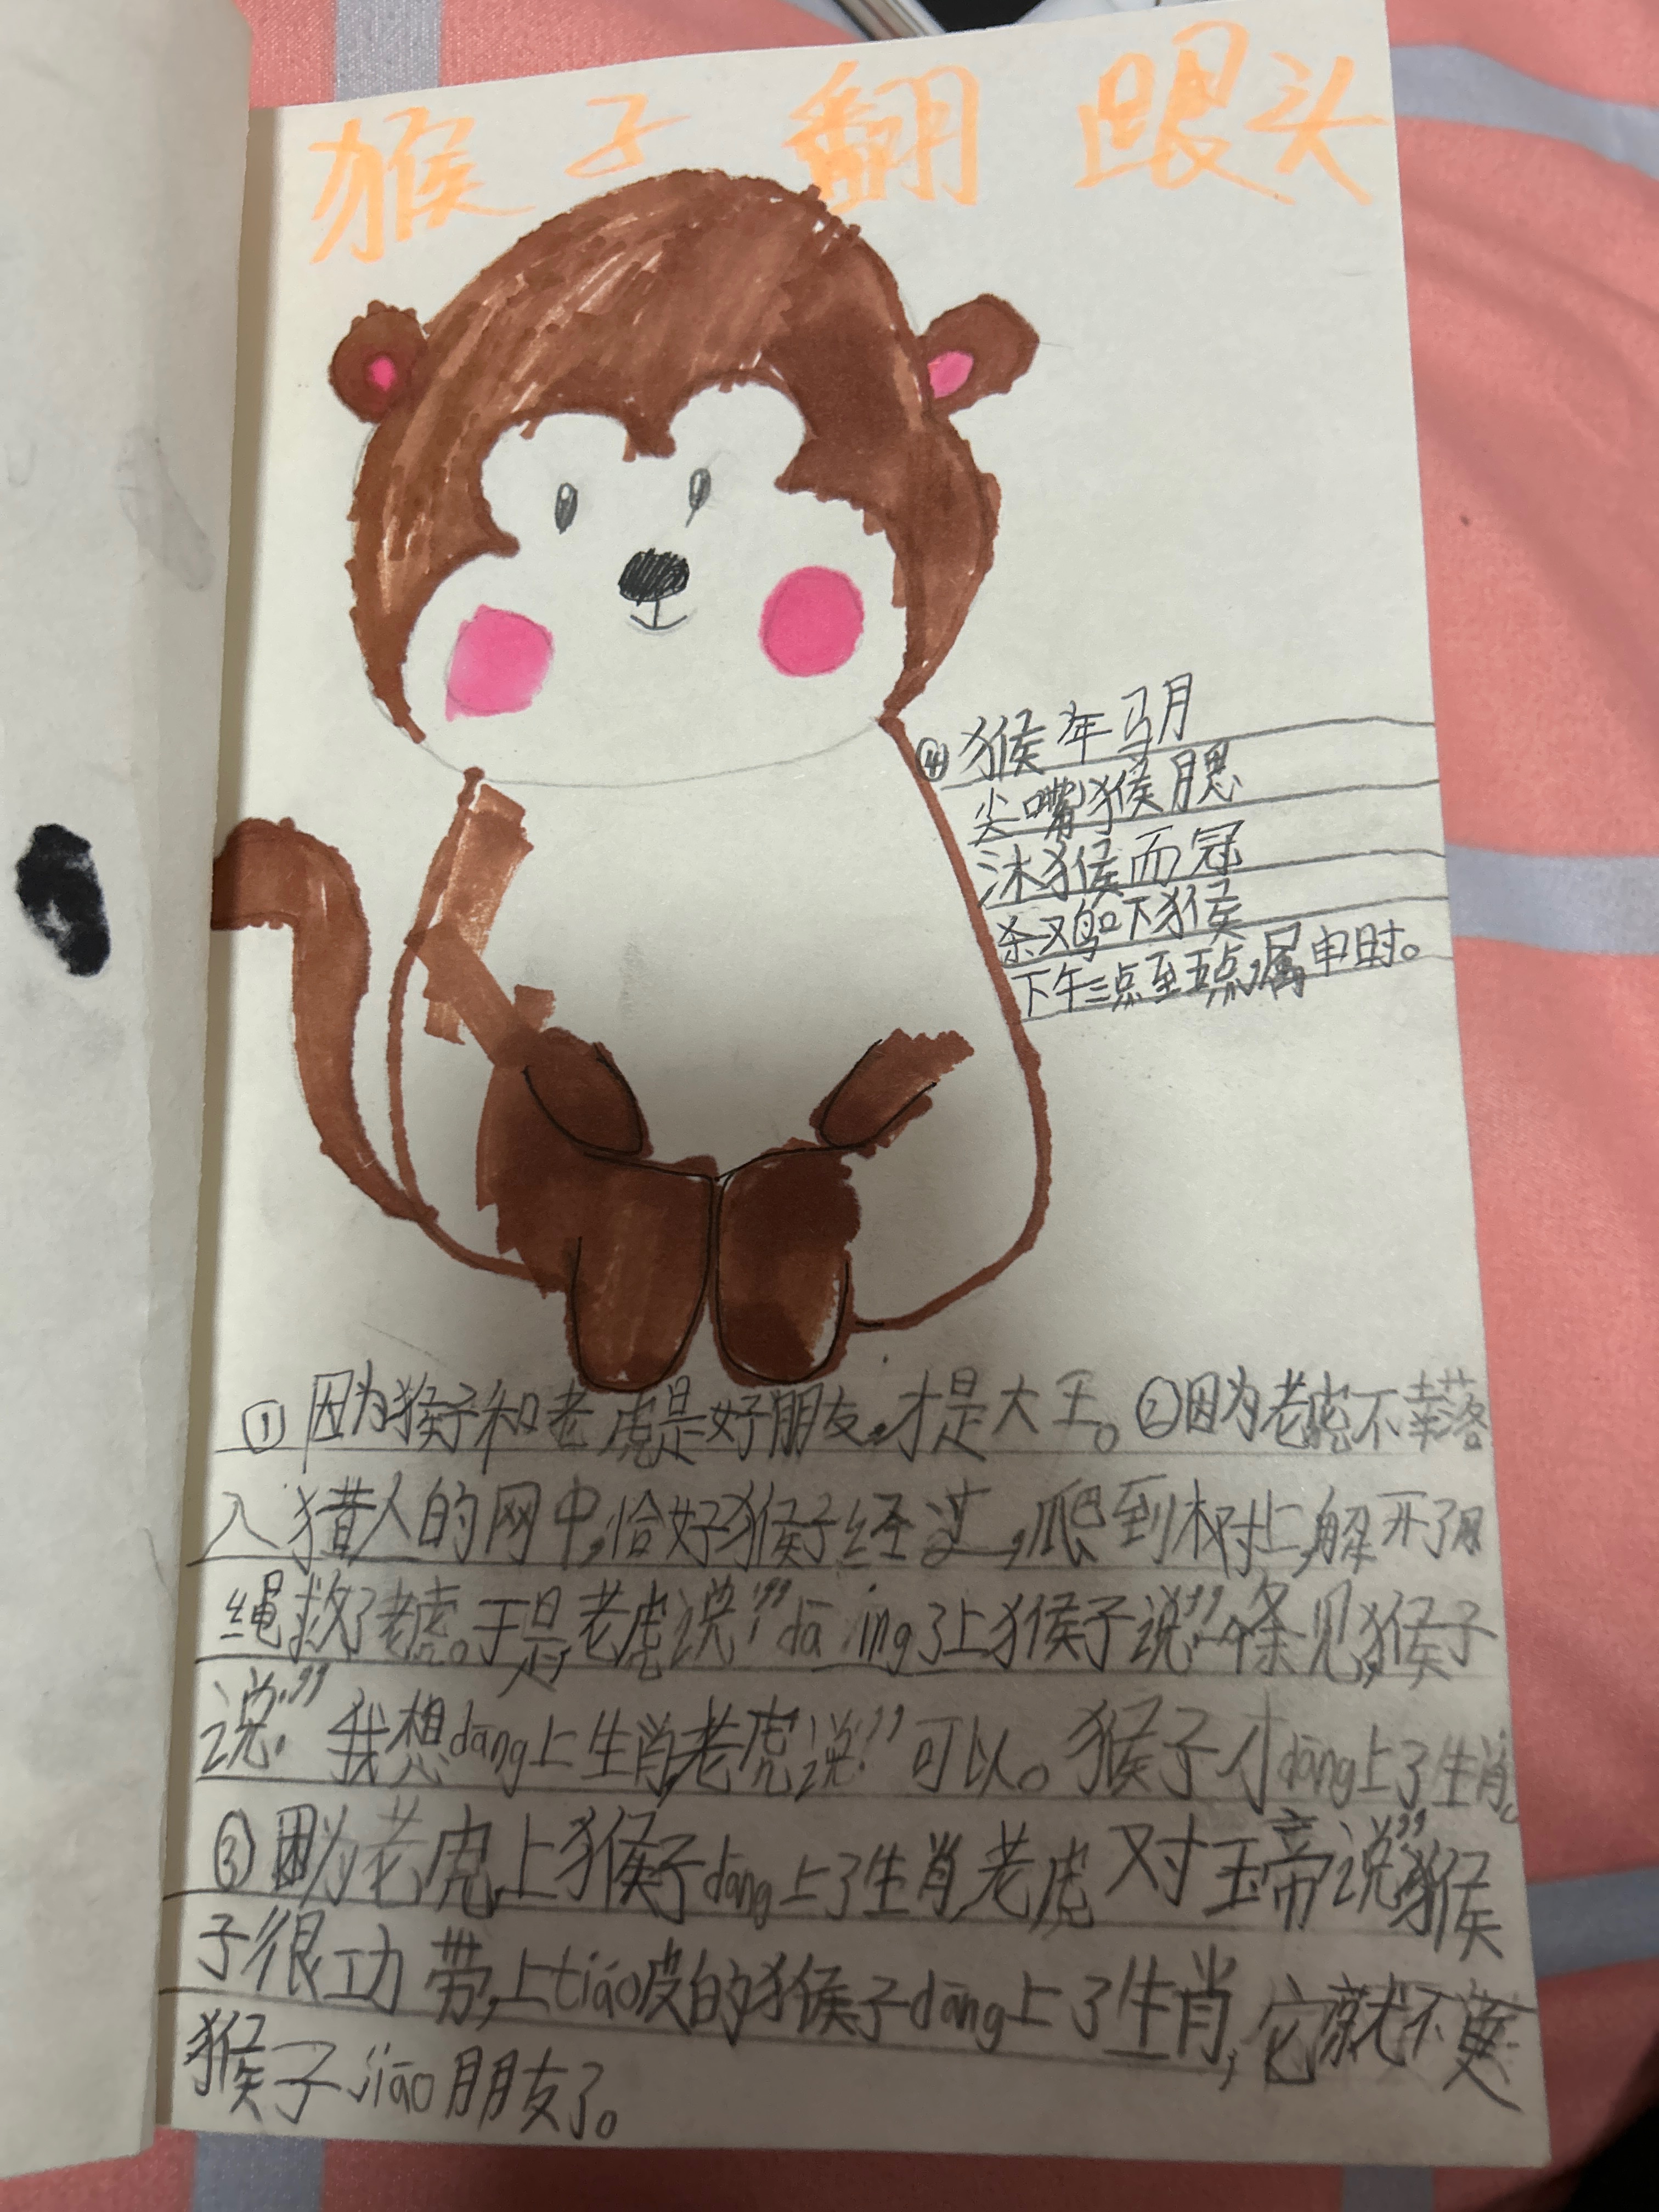 猴子翻跟头
④猴年马月
尖嘴猴腮
沐猴而冠
杀鸡吓猴
下午三点至五点,属申时。
①因为猴子和老虎是好朋友,才是大王。②因为老虎不幸落
入猎人的网中,恰好猴子经过,爬到树上,解开了网
绳救了老虎。于是,老虎说:"dā ing了上猴子说:"个条见,猴子
说:"我想dāng上生肖,老虎说:"可以。猴子才dāng上了生肖。
③因为老虎上猴子dāng上了生肖,老虎对玉帝说:"猴
子很功带,上tiáo皮的猴子dāng上了生肖,它就不
猴子jiāo朋友了。